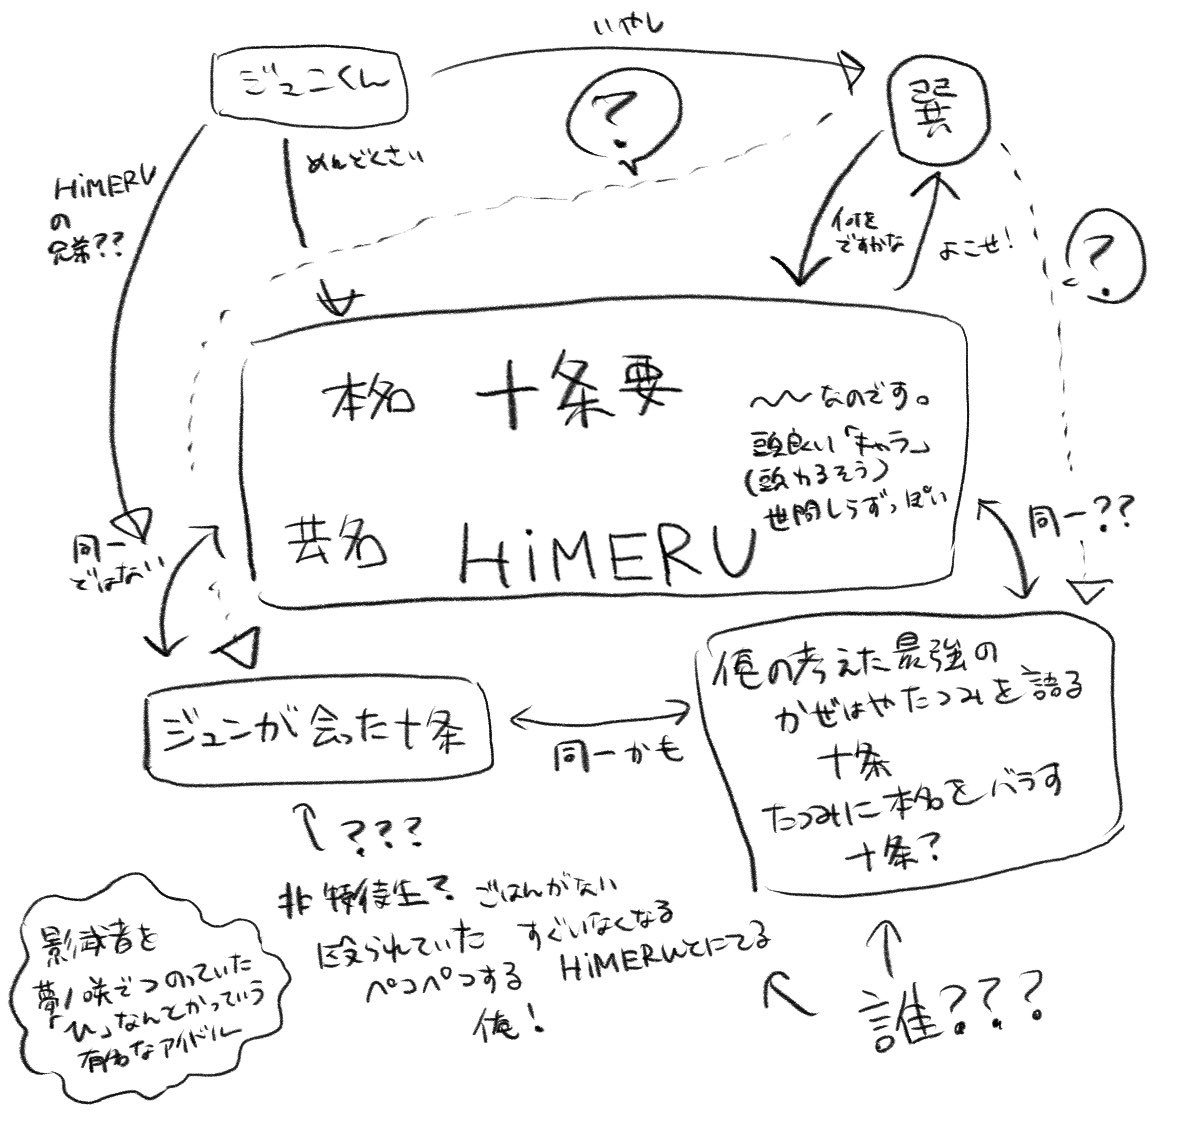 いやし
ジュンくん
巽
?
めんどくさい
HiMERU
の
兄弟??
何を
ですかな
よこせ!
?
本名 十条要
~~なのです。
頭良い「キャラ」
(頭わるそう)
世間しらずっぽい
共名 HiMERU
同一??
同一
ではない
俺の考えた最強の
かぜはやたつみを語る
十条
たつみに本名をバラす
十条?
ジュンが会った十条
同一かも
???
非特待生? ごはんがない
殴られていた すぐいなくなる
ペコペコする HiMERUとにてる
俺!
影武者を
夢ノ咲でつのっていた
「ひ」なんとかっていう
有名なアイドル
誰???